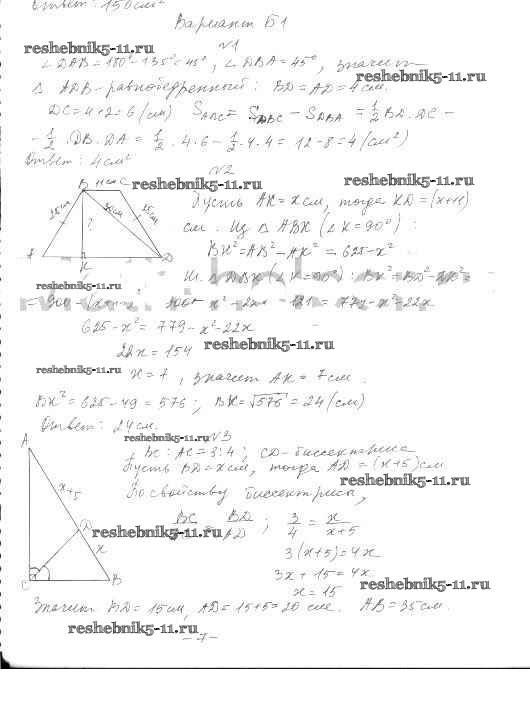 Ответ: 150 см²
Вариант Б1
reshebnik5-11.ru
№1
∠DAB = 180° - 135° = 45°, ∠DBA = 45°, значит
Δ ADB - равнобедренный: BD = AD = 4 см.
reshebnik5-11.ru
DC = 4 + 2 = 6 (см) S_ABC = S_DBC - S_DBA = 1/2 BD · DC -
- 1/2 · DB · DA = 1/2 · 4 · 6 - 1/2 · 4 · 4 = 12 - 8 = 4 (см²)
Ответ: 4 см²
№2
reshebnik5-11.ru
reshebnik5-11.ru
B 11 см C
25 см
?
30 см
25 см
A
K
D
Пусть AK = x см, тогда KD = (x+11)
см. Из Δ ABK (∠K = 90°):
BK² = AB² - AK² = 625 - x²
reshebnik5-11.ru
reshebnik5-11.ru
Из Δ DBK (∠K = 90°): BK² = BD² -
= 900 - x² - 22x - 121 = 779 - x² - 22x
625 - x² = 779 - x² - 22x
22x = 154
reshebnik5-11.ru
reshebnik5-11.ru
x = 7, значит AK = 7 см.
BK² = 625 - 49 = 576; BK = √576 = 24 (см)
Ответ: 24 см.
reshebnik5-11.ru
№3
BC : AC = 3 : 4; CD - биссектриса
Пусть BD = x см, тогда AD = (x+5) см
reshebnik5-11.ru
По свойству биссектрисы,
A
x+5
D
x
C
B
BC BD ; 3/4 = x/(x+5)
reshebnik5-11.ru
AD
3(x+5) = 4x
3x + 15 = 4x
reshebnik5-11.ru
x = 15
Значит BD = 15 см, AD = 15 + 5 = 20 см. AB = 35 см.
reshebnik5-11.ru
- 7 -